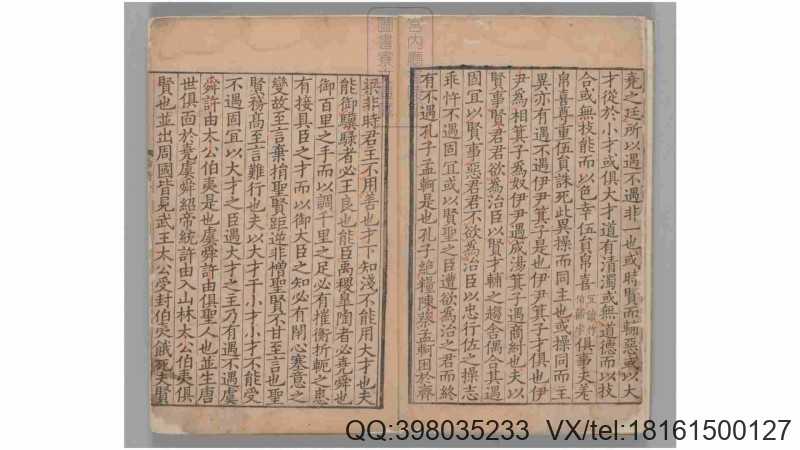 堯之廷所以遇不遇非一也或時賢而輔惡或以大
才從於小才或俱大才道有清濁或無道德而以技
合或無技能而以色幸伍員帛喜俱事夫差
帛喜尊重伍員誅死此異操而同主也或操同而主
異亦有遇不遇伊尹箕子是也伊尹箕子才俱也伊
尹爲相箕子爲奴伊尹遇成湯箕子遇商紂也夫以
賢事賢君君欲爲治臣以賢才輔之趨舍偶合其遇
固宜以賢事惡君君不欲爲治臣以忠行佐之操志
乖忤不遇固宜或以賢聖之臣遭欲爲治之君而終
有不遇孔子孟軻是也孔子絶糧陳蔡孟軻困於齊
梁非時君主不用善也才下知淺不能用大才也夫
能御驥騄者必王良也能臣禹稷皐陶者必堯舜也
御百里之手而以調千里之足必有摧衡折軛之患
有接具臣之才而以御大臣之知必有閉心塞意之
變故至言棄捐聖賢距逆非憎聖賢不甘至言也聖
賢務髙至言難行也夫以大才干小才小才不能受
不遇固宜以大才之臣遇大才之主乃有遇不遇虞
舜許由太公伯夷是也虞舜許由俱聖人也並生唐
世俱面於堯虞舜紹帝統許由入山林太公伯夷俱
賢也並出周國皆見武王太公受封伯夷餓死夫賢
QQ:398035233 VX/tel:18161500127